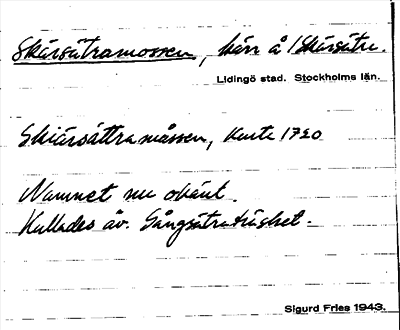 Skärsätramossen, kärr å /Skärsätra.
Lidingö stad. Stockholms län.
Skiärsättra måssen, Karta 1720
Namnet nu okänt.
Kallades äv. Gångsätrakärret.
Sigurd Fries 1943.